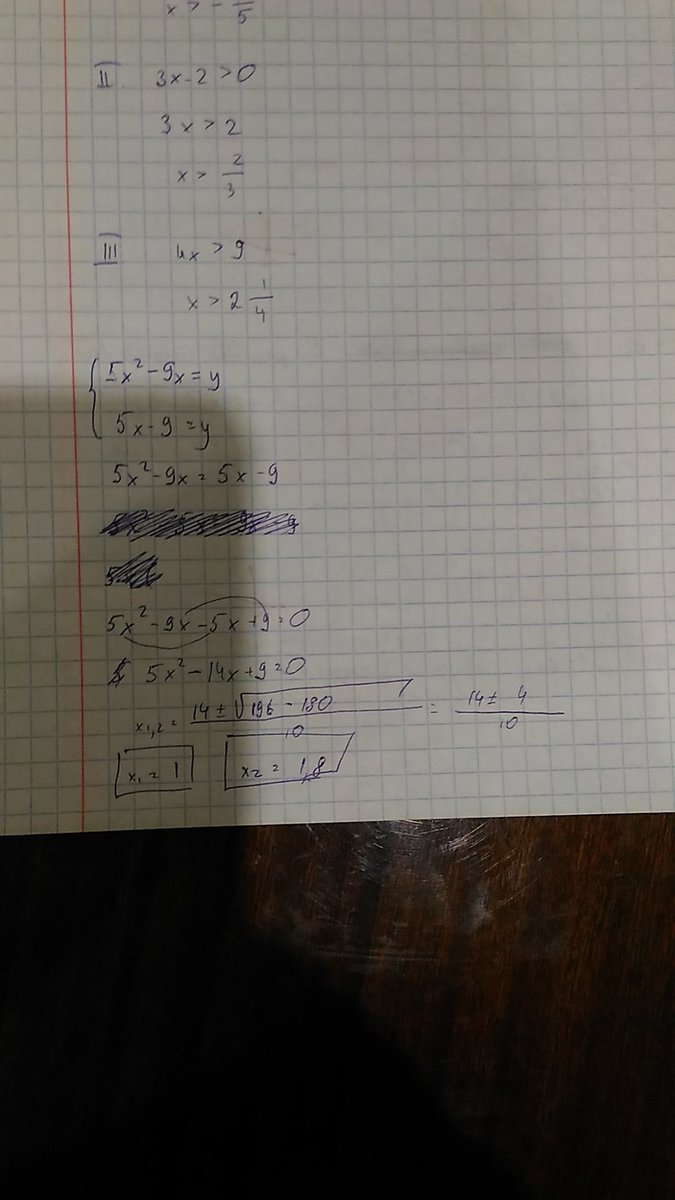 x > - /5
II 3x-2 > 0
3x > 2
x > 2/3
III 4x > 9
x > 2 1/4
{ 5x² - 9x = y
5x - 9 = y
5x² - 9x = 5x - 9
5x² - 9x - 5x + 9 = 0
5x² - 14x + 9 = 0
x₁,₂ = 14 ± √196 - 180 / 10 = 14 ± 4 / 10
x₁ = 1 x₂ = 1,8